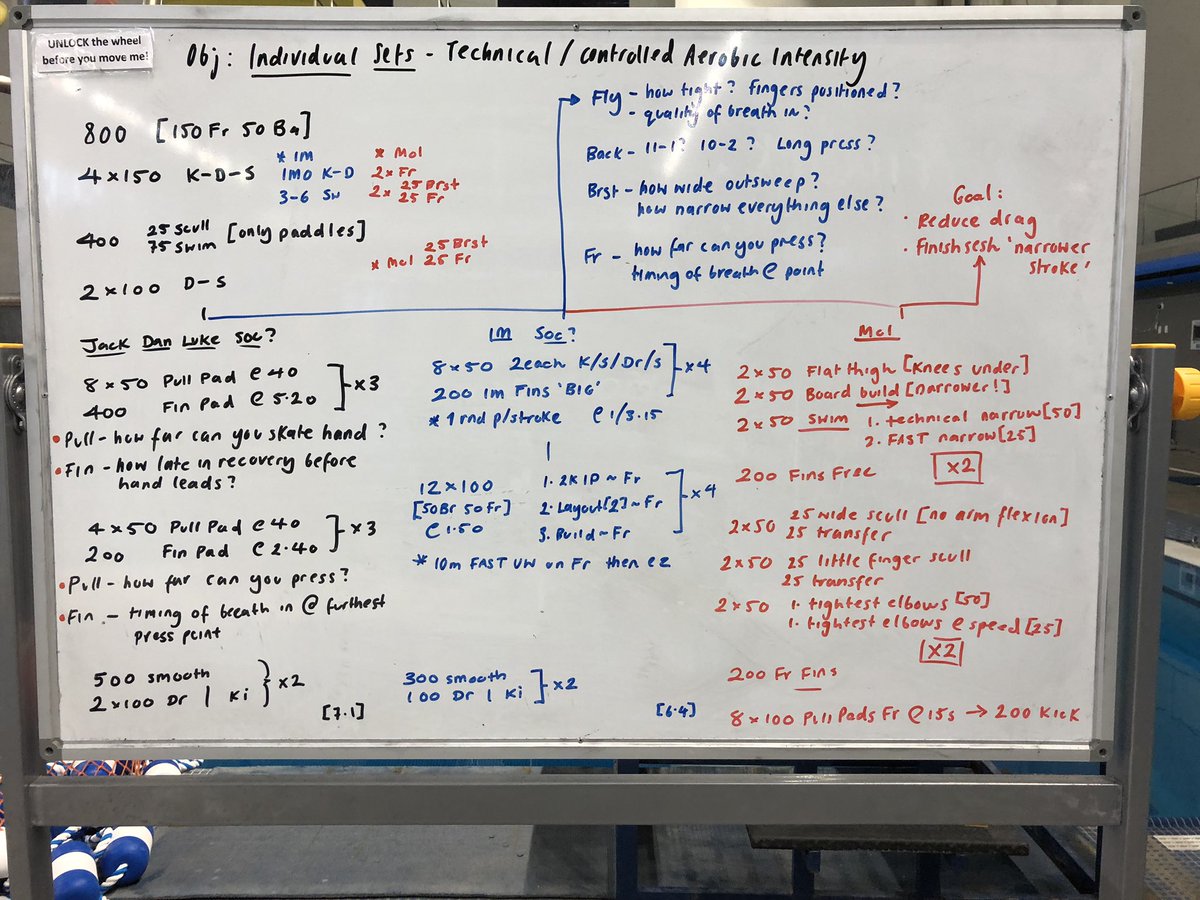 UNLOCK the wheel
before you move me!
Obj: Individual Sets - Technical / Controlled Aerobic Intensity
800 [150 Fr 50 Ba]
4×150 K-D-S
* IM
IMO K-D
3-6 Sw
* Mol
2× Fr
2× 25 Brst
25 Fr
400 25 Scull
75 Swim [only paddles]
2×100 D-S
* Mol 25 Brst
25 Fr
Fly - how tight? Fingers positioned?
- quality of breath in?
Back - 11-1? 10-2? Long press?
Brst - how wide outsweep?
how narrow everything else?
Fr - how far can you press?
timing of breath @ point
Goal:
· Reduce drag
· Finish sesh 'narrower
stroke'
Jack Dan Luke Soc?
8×50 Pull Pad @ 40
400 Fin Pad @ 5.20
] ×3
• Pull - how far can you skate hand?
• Fin - how late in recovery before
hand leads?
4×50 Pull Pad @ 40
200 Fin Pad @ 2.40
] ×3
• Pull - how far can you press?
• Fin - timing of breath in @ furthest
press point
500 smooth
2×100 Dr | Ki
} ×2
[7.1]
IM Soc?
8×50 2each K/S/Dr/S
200 IM Fins 'BIG'
] ×4
* 1 rnd p/stroke @ 1/3.15
12×100
[50Br 50Fr]
@ 1.50
1. 2K 1P ~ Fr
2. Layout[2] ~ Fr
3. Build ~ Fr
] ×4
* 10m FAST UW on Fr then ez
300 smooth
100 Dr | Ki
] ×2
[6.4]
Mol
2×50 Flat thigh [Knees under]
2×50 Board build [narrower!]
2×50 SWIM 1. technical narrow [50]
2. FAST narrow [25]
×2
200 Fins Free
2×50 25 wide scull [no arm flexion]
25 transfer
2×50 25 little finger scull
25 transfer
2×50 1. tightest elbows [50]
1. tightest elbows @ speed [25]
×2
200 Fr Fins
8×100 Pull Pads Fr @ 15s → 200 Kick